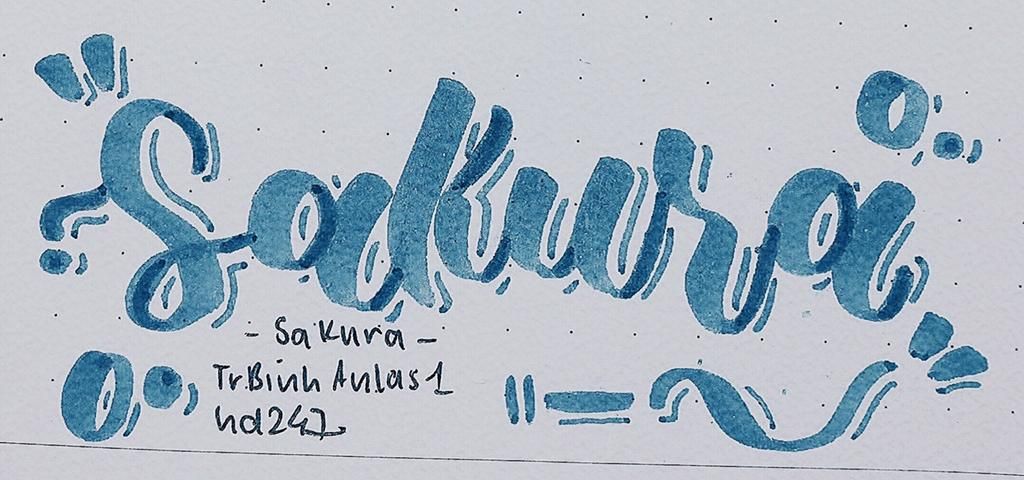 Sakura
- Sakura -
TrBinh Anlas1
hd247